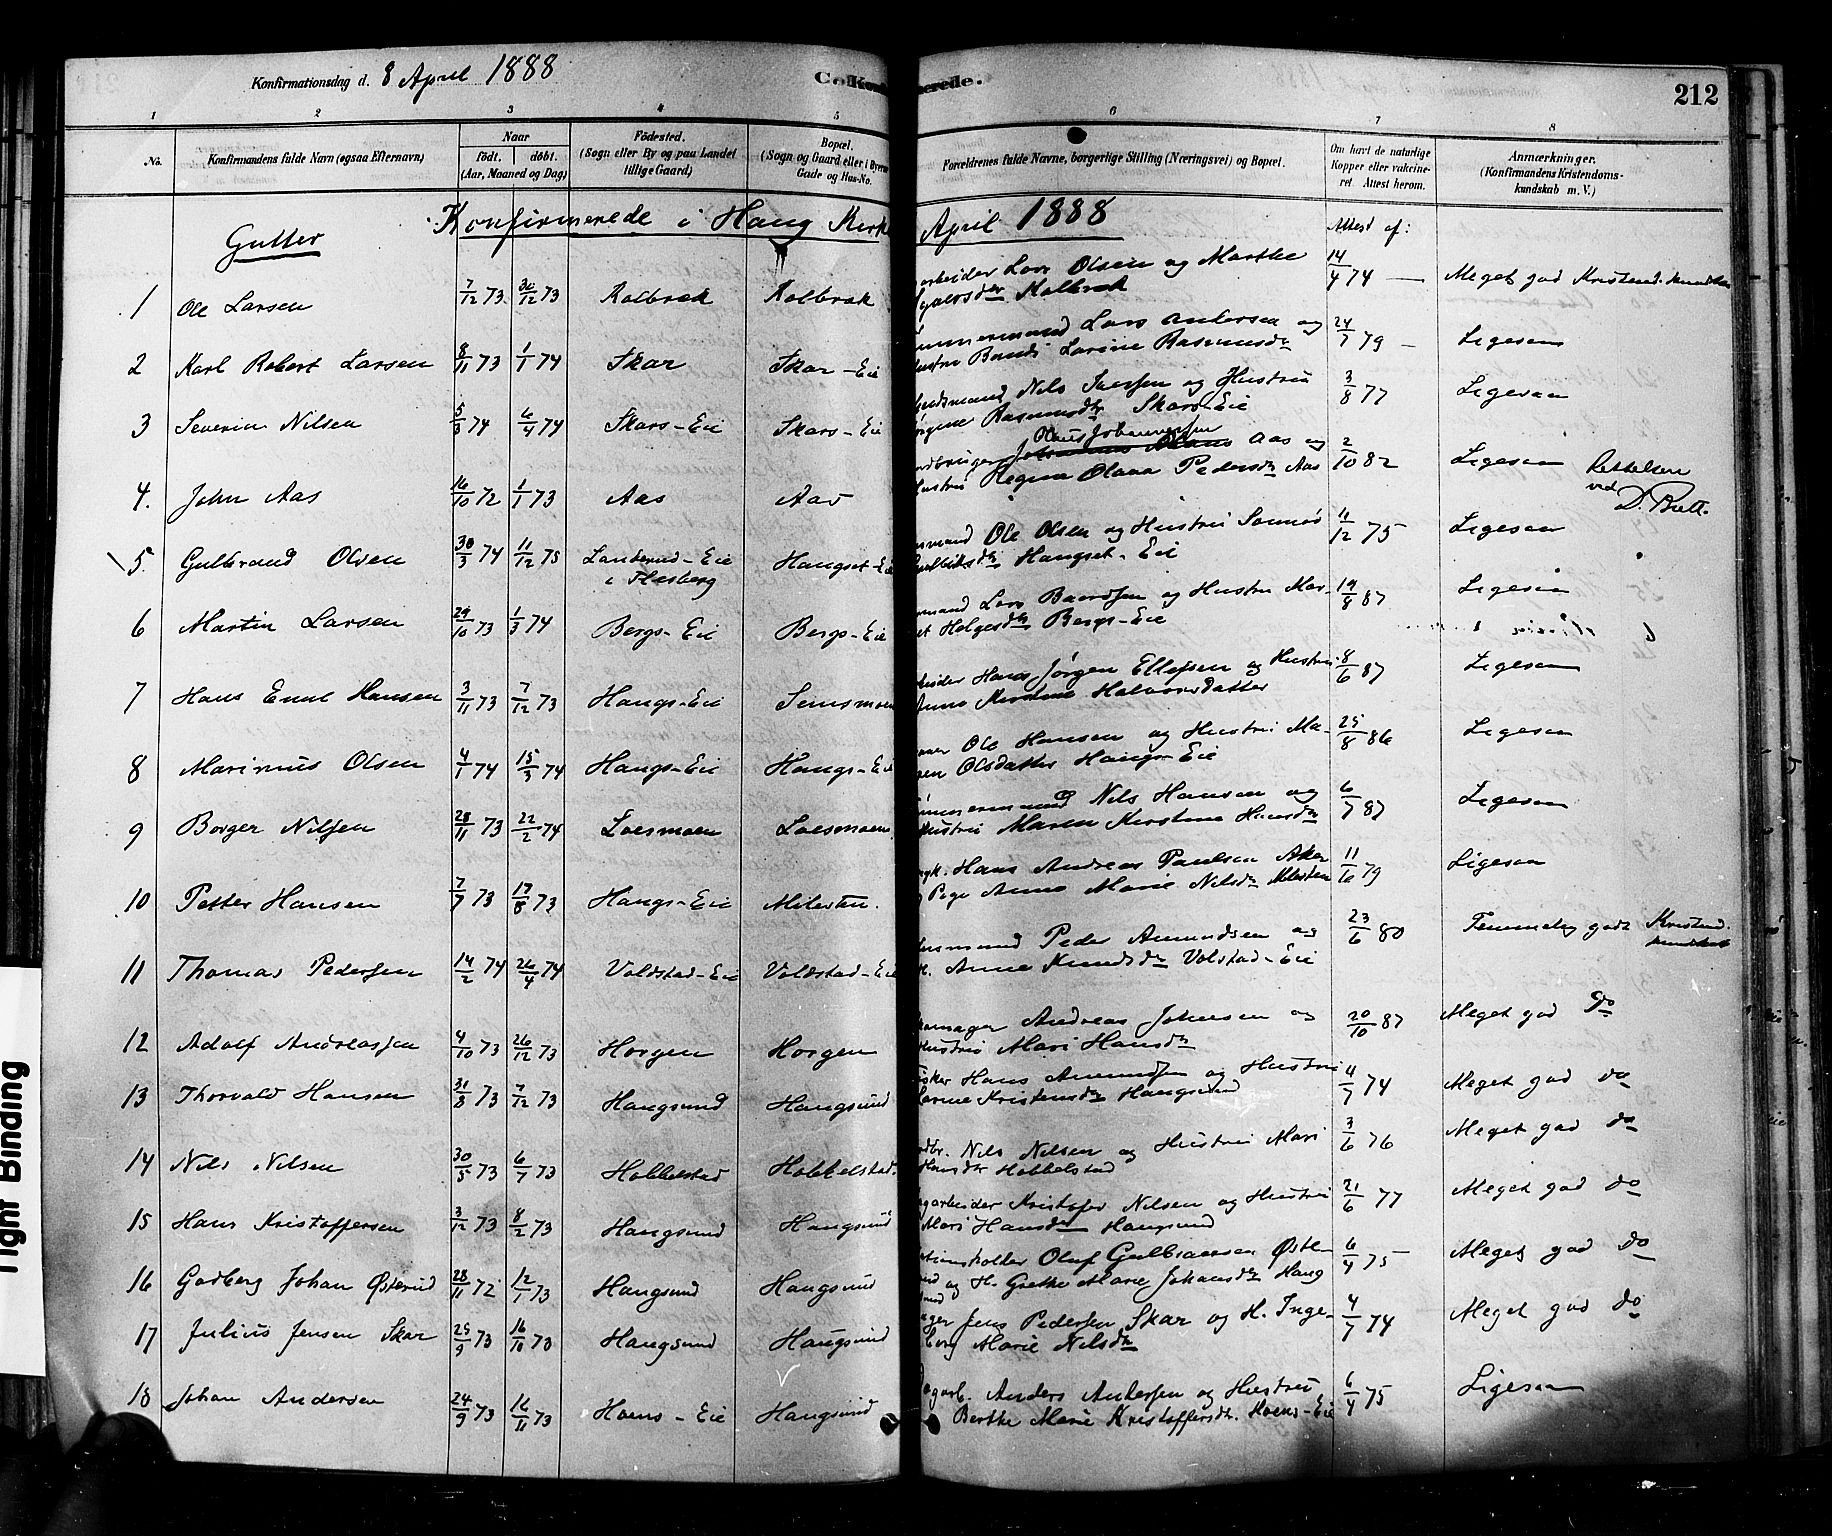 Konfirmationsdag d. 8 April 1888
C. Konfi merede.
212
1 2 3 4 5 6 7 8
No.
Konfirmandens fulde Navn (ogsaa Efternavn)
Naar
födt. döbt.
(Aar, Maaned og Dag)
Födested.
(Sogn eller By og paa Landet
tillige Gaard)
Bopæl.
(Sogn og Gaard eller i Byerne
Gade og Hus-No.
Forældrenes fulde Navne, borgerlige Stilling (Næringsvei) og Bopæl.
Om havt de naturlige
Kopper eller vakcine-
ret. Attest herom.
Anmærkninger.
(Konfirmandens Kristendoms-
kundskab m. V.)
Konfirmerede i Haug Kirke April 1888
Gutter
Attest af:
1 Ole Larsen 7/12 73 30/12 73 Kolbræk Kolbræk arbeider Lars Olsen og Marthe
Kolbræk 14/4 74 — Meget god Kristend. kundskab
2 Karl Robert Larsen 8/11 73 1/1 74 Skar Skar-Eie mmermand Lars Andersen og
Hustru Larine Rasmusdtr 24/7 79 — Ligesaa
3 Severin Nilsen 5/3 74 6/4 74 Skars-Eie Skars-Eie Nils Iversen og Hustru
Rasmusdtr Skars-Eie 3/8 77 Ligesaa
4. John Aas 16/10 72 1/1 73 Aas Aas Olaus Johannessen
Aas og
Hustru Regine Olava Pedersdtr Aas 2/10 82 Ligesaa Rettelsen
ved
5. Gulbrand Olsen 30/3 74 11/12 75 Landerud-Eie
i Flesberg Haugset-Eie smand Ole Olsen og Hustru
Haugset-Eie 11/12 75 Ligesaa
6 Martin Larsen 29/10 73 1/3 74 Bergs-Eie Bergs-Eie smand Lars Baardsen og Hustru Mar-
et Helgesdtr Bergs-Eie 19/8 87 Ligesaa
7 Hans Emil Hansen 3/11 73 7/12 73 Haugs-Eie Semsmoen eider Hans Jørgen Ellefsen og Hustru
Anne Kirstine Halvorsdatter 8/6 87 Ligesaa
8 Marinus Olsen 4/1 74 15/3 74 Haugs-Eie Haugs-Eie Ole Hansen og Hustru Ma-
ren Olsdatter Haugs-Eie 25/8 86 Ligesaa
9 Borger Nilsen 28/11 73 22/2 74 Loesmoen Loesmoen. ømmermand Nils Hansen og
Hustru Maren Kirstine Hansdtr 6/7 87 Ligesaa
10 Petter Hansen 7/7 73 17/8 73 Haugs-Eie Milesten. Hans Andreas Paulsen Aker
Pige Anne Marie Nilsdtr Milesten 11/6 79 Ligesaa
11 Thomas Pedersen 14/2 74 26/4 74 Voldstad-Eie Voldstad-Eie Husmand Peder Amundsen og
H. Anne Knudsdtr Volstad-Eie 23/6 80 Temmelig godt Kristend.
kundskab
12 Adolf Andreassen 4/10 73 26/12 73 Horgen Horgen komager Andreas Johnsen og
Hustru Mari Hansdtr 20/10 87 Meget god do
13 Thorvald Hansen 31/8 73 7/12 73 Haugsund Haugsund isker Hans Amundsen og Hustru
Karine Kristensdtr Haugsund 4/7 74 Meget god do
14 Nils Nilsen 30/5 73 6/7 73 Hobbelstad Hobbelstad. rdbr. Nils Nilsen og Hustru Mari
Hansdtr Hobbelstad 3/6 76 Meget god do
15 Hans Kristoffersen 3/12 73 8/2 73 Haugsund Haugsund agarbeider Kristofer Nilsen og Hustru
Mari Hansdtr Haugsund 21/6 77 Meget god do
16 Godberg Johan Østerud 28/11 72 12/1 73 Haugsund Haugsund tionsholder Oluf Gulbransen Øste-
rud og H. Grethe Marie Johansdtr Haug
sund 6/4 75 Meget god do
17 Julius Jensen Skar 25/9 73 16/10 73 Haugsund Haugsund ager Jens Pedersen Skar og H. Inge-
borg Marie Nilsdtr 4/7 74 Meget god do
18 Johan Andersen 24/9 73 16/11 73 Hoens-Eie Haugsund Dagarb. Anders Andersen og Hustru
Berthe Marie Kristoffersdtr. Hoens-Eie 6/4 75 Ligesaa
Tight Binding